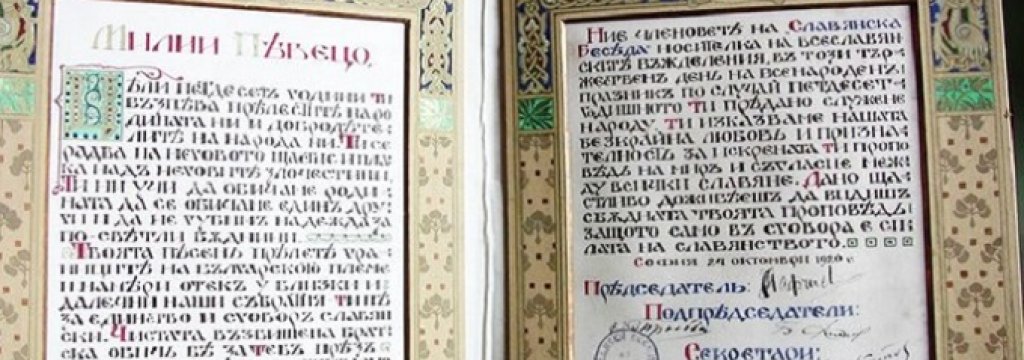 Милий Пѣвецо,
Цѣли петдесеть години ти
възпѣва прѣлеститѣ на ро-
дината ни и добродѣте-
литѣ на народа ни. Ти се
радва на неговото щастие и плака
надъ неговитѣ злочестини,
Ти ни учи да обичаме роди-
ната да се обичаме единъ дру-
ги и да не губимъ надежда за
по-свѣтли бѫднини.
Твоята пѣсень прѣлетѣ гра-
ницитѣ на българското племе
и намѣри отекъ у близки и
далечни наши събратия
за единство и сговоръ славян-
ски. Чистата възвишена братс-
ка обичь бѣ за тебъ прѣзъ
Ние членоветѣ на Славянска
Бесѣда носителка на всеславян-
скитѣ въжделения, въ този тър-
жественъ день на всенароденъ
празникъ по случай петдесет-
годишното ти прѣдано служене
народу, ти изказваме нашата
безкрайна любовь и призна-
телность за искрената ти пропо-
вѣдь на миръ и съгласие меж-
ду всички славяне. Дано ща-
стливо доживѣешъ да видишъ
сбѫдната твоята проповѣдь,
защото само въ сговора е си-
лата на славянството.
София 24 октомври 1920 г.
Прѣдседатель:
Подпрѣдседатели:
Секретари: